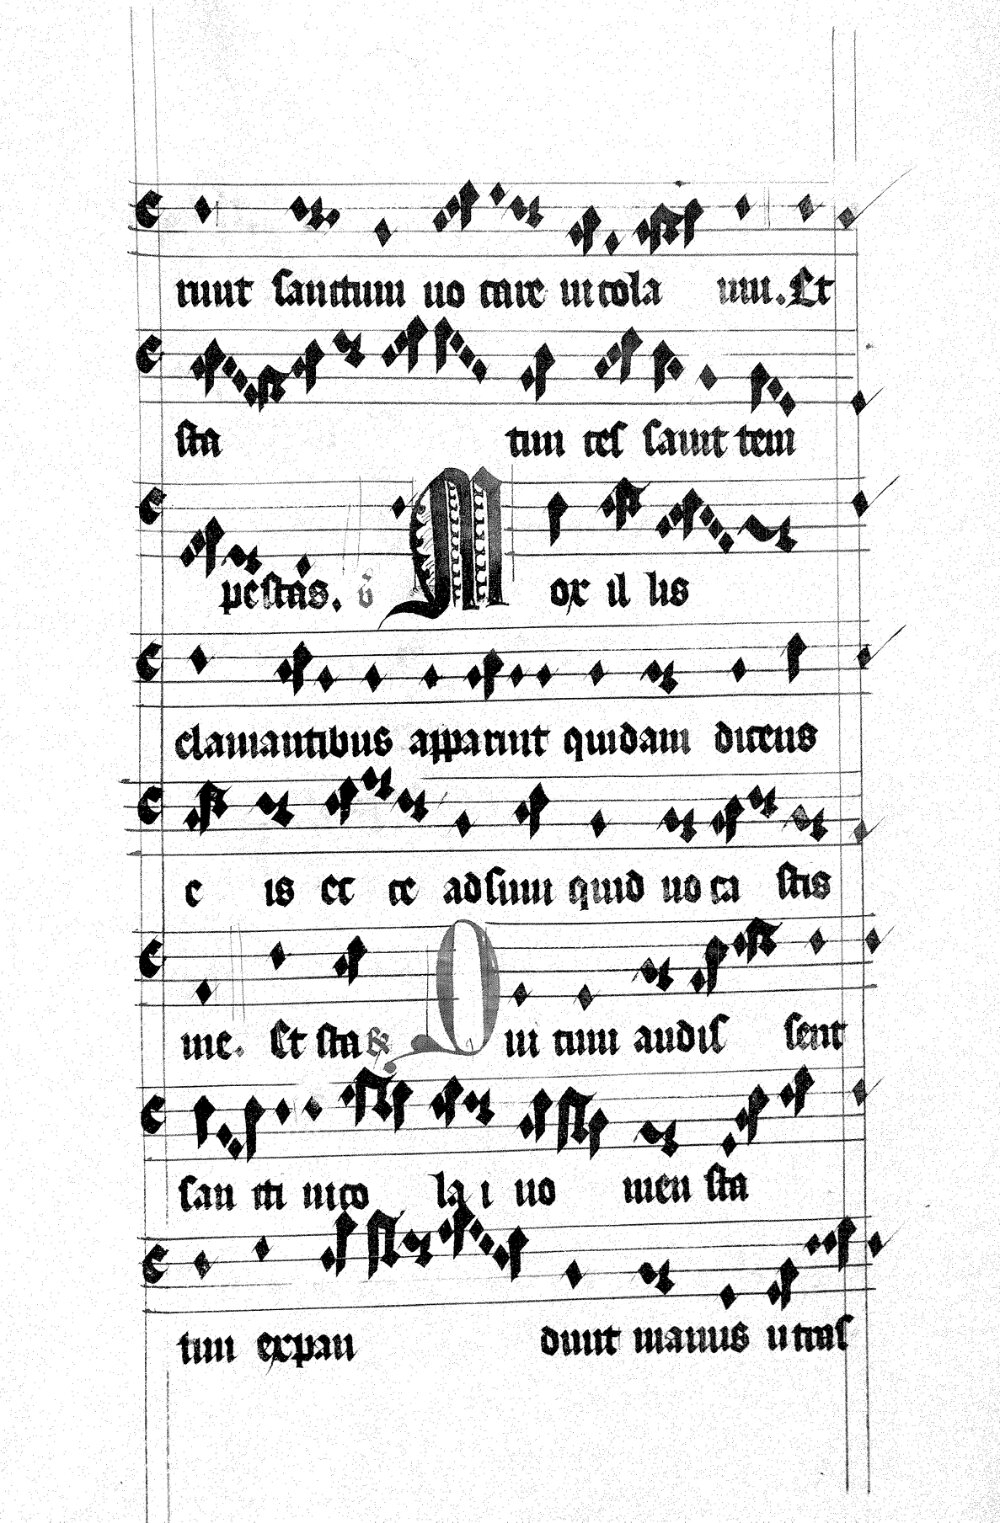 runt sanctum uo care nicola um. Et
sta tim ces sauit tem
pestas. v̄ Mox il lis
clamantibus apparuit quidam dicens
e is ec ce adsum quid uo ca stis
me. Et sta Qui cum audis sent
san cti nico la i no men sta
tim expan dunt manus utras